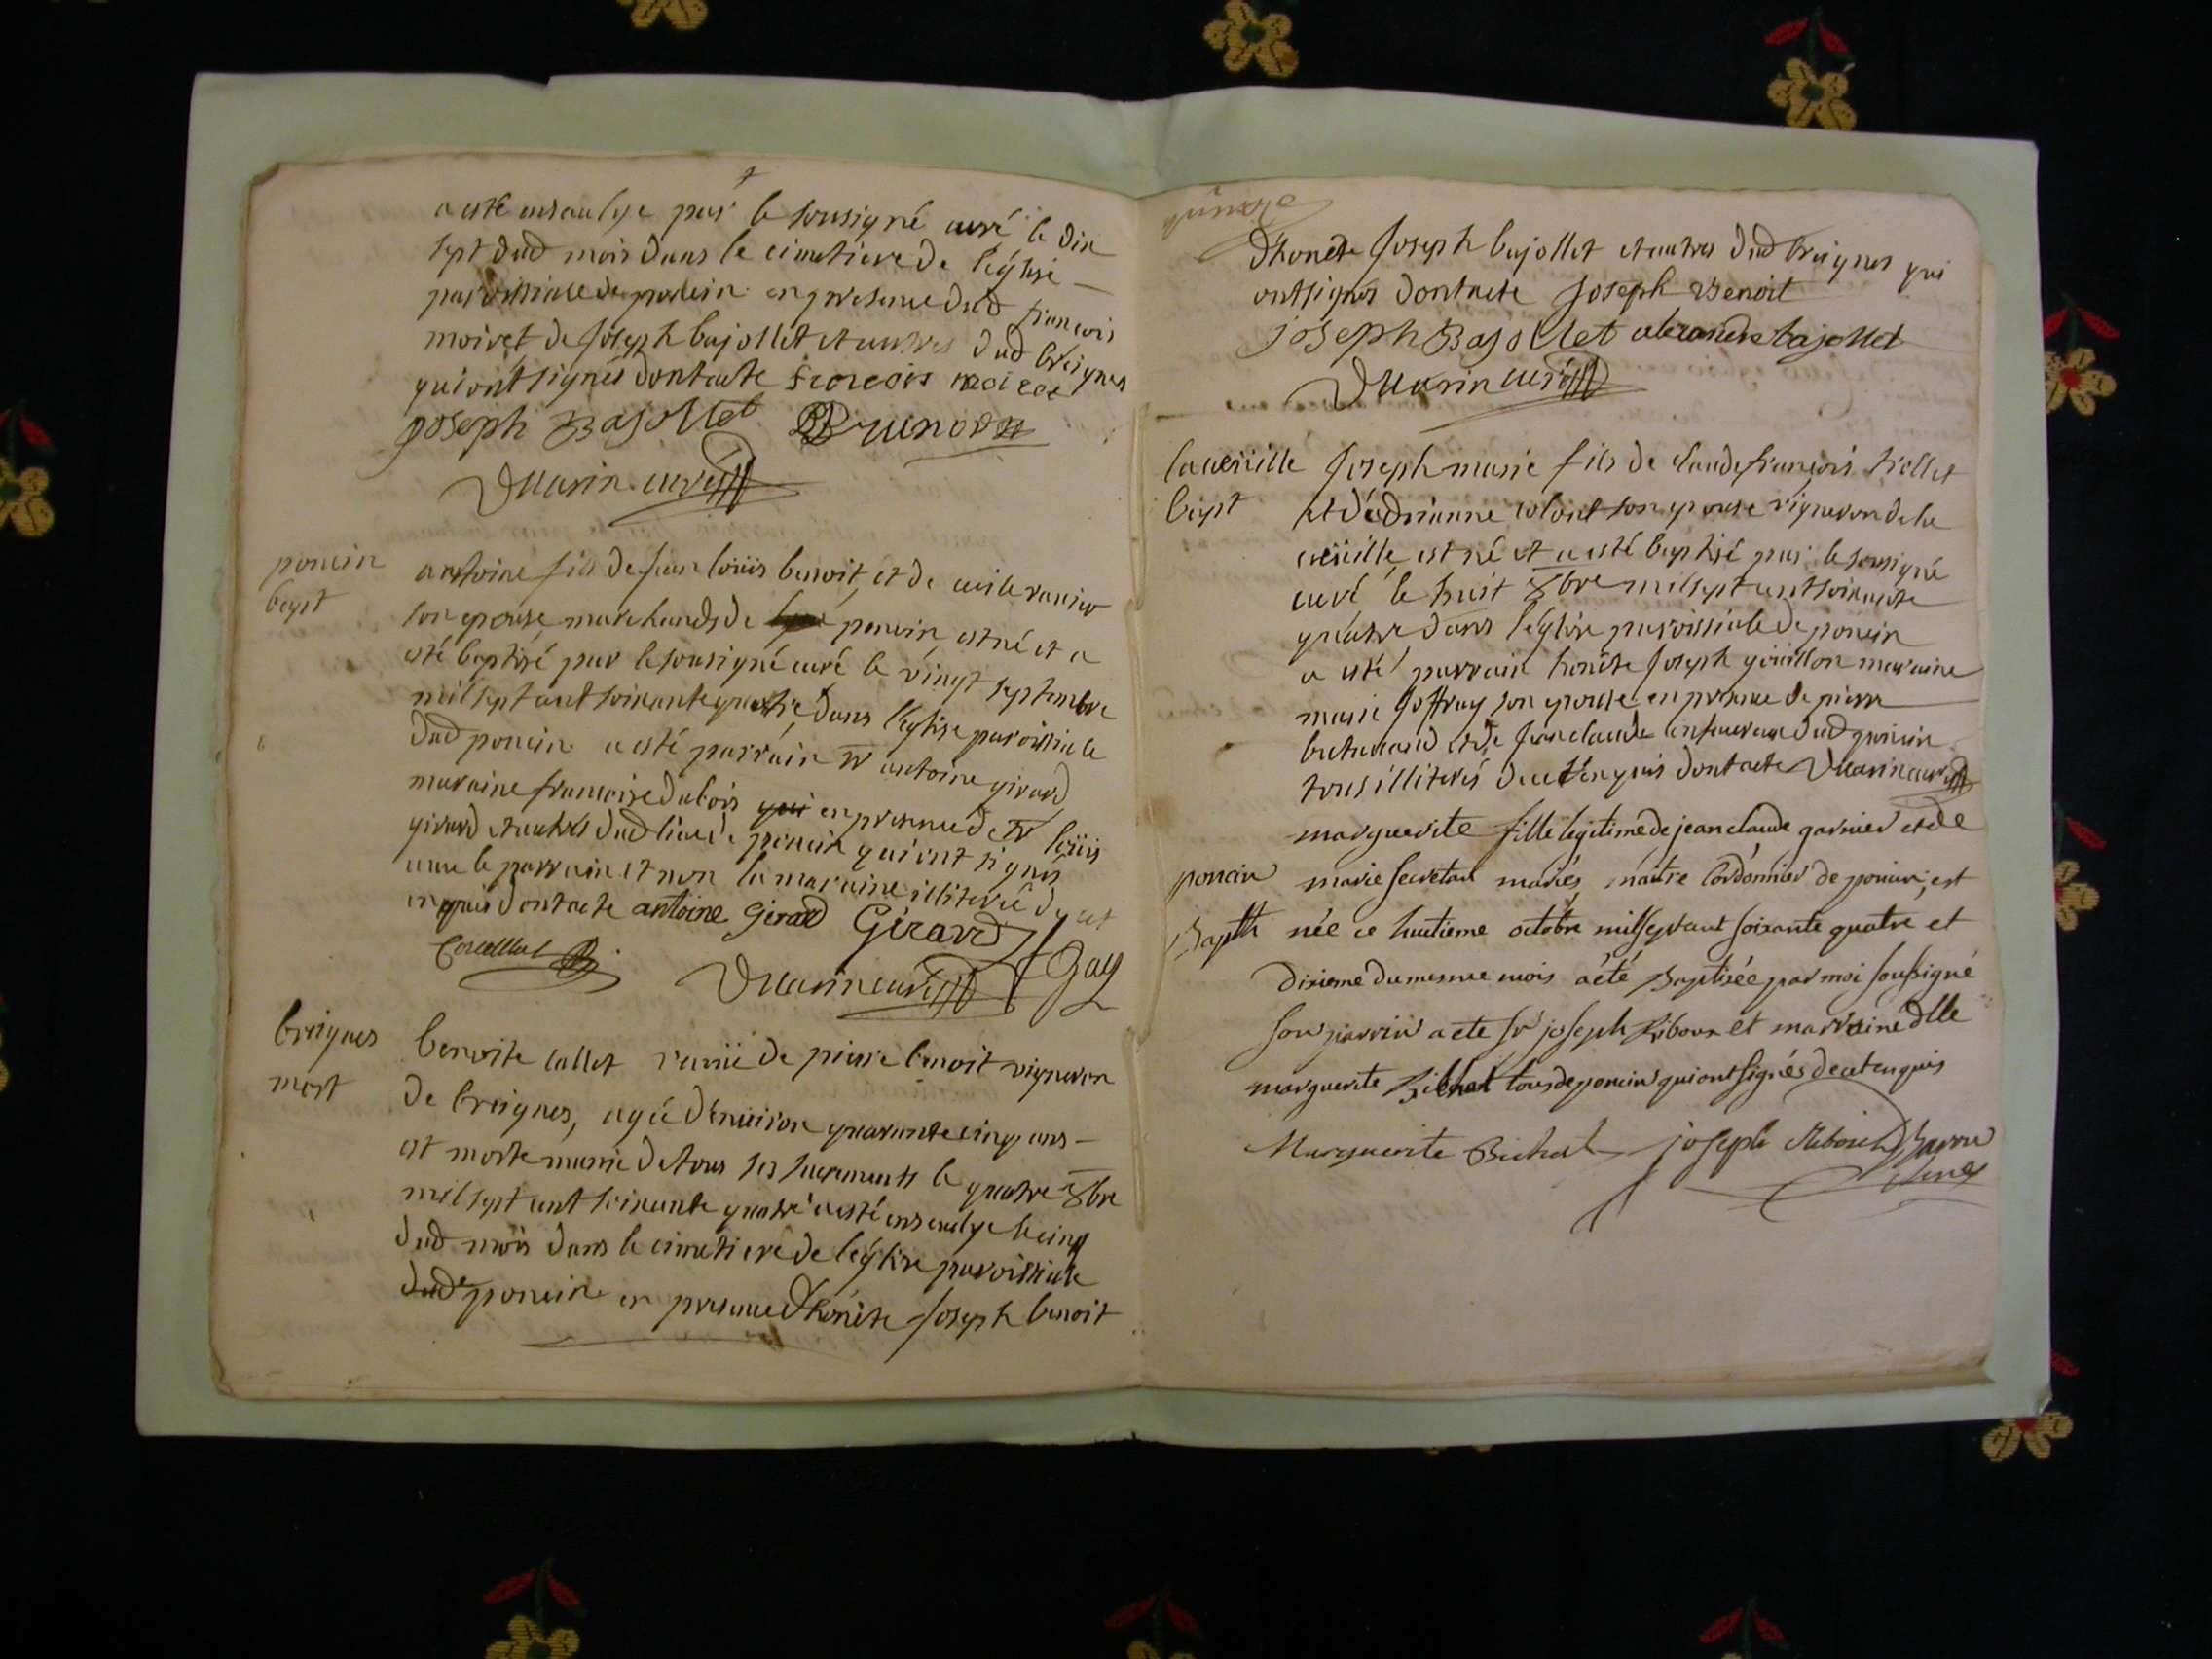 a esté ensevelye par le sousigné curé le dix
sept dud mois dans le cimetiere de l'église
paroissiale de poncin en presence dud françois
moiret de Joseph bajollet et autres dud breignes
qui ont signés dont acte francois moiret
joseph Bajollet Brunod
Dumarin curé
poncin
bapt
antoine fils de jean loüis benoit, et de cecile ravier
son epouse marchands de poncin est né et a
esté baptisé par le sousigné curé le vingt septembre
mil sept cent soixante quatre, dans l'église paroissiale
dud poncin a esté parrain sr antoine girard
maraine francoise dubois qui en presence de sr loüis
girard et autres dud lieu de poncin qui ont signés
avec le parrain et non la maraine illiterée de ce
enquis dont acte antoine Girard Girard
Gay
Dumarin curé
breignes
mort
benoite callet vanië de pierre benoit vigneron
de breignes, agée d'environ quarante cinq ans
est morte munie de tous ses sacrements le quatre 8bre
mil sept cent soixante quatre a esté ensevelye le cinq
dud mois dans le cimetiere de l'église paroissiale
dud poncin en presence d'honête Joseph benoit
d'honete Joseph bajollet et autres dud breignes qui
ont signés dont acte Joseph Benoit
joseph Bajollet alexandre bajollet
Dumarin curé
la cueïille
bapt
Joseph marie fils de claude françois triollet
et d'édrianne colont son epouse vigneron de la
cueïille, est né et a esté baptisé par le sousigné
curé le huit 8bre mil sept cent soixante
quatre dans l'église paroissiale de poncin
a esté parrain honête Joseph goüillon maraine
marie Joffray son epouse en presence de pierre
et de Jean claude dud poncin
tous illiterés de ce enquis dont acte Dumarin curé
poncin
Bapth
marguerite fille legitime de jean claude garnier et de
marie secretan mariés, maitre Cordonnier de poncin, est
née ce huitieme octobre mil sept cent soixante quatre, et
dixieme du mesme mois a été Baptisée par moi soussigné
son parrin a ete sr joseph Riboux et marraine dlle
marguerite Bichat tous de poncin qui ont signés de ce enquis
Marguerite Bichat joseph Riboud